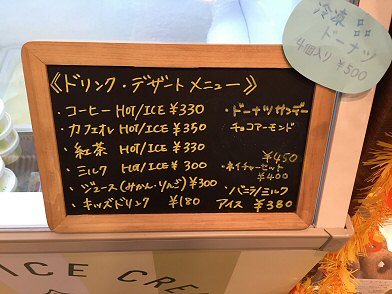 冷凍
ドーナツ
4個入り ¥500
《ドリンク・デザートメニュー》
・コーヒー HOT/ICE ¥330
・カフェオレ HOT/ICE ¥350
・紅茶 HOT/ICE ¥330
・ミルク HOT/ICE ¥300
・ジュース(みかん・りんご) ¥300
・キッズドリンク ¥180
・ドーナツサンデー
チョコアーモンド
¥450
・ネイチャーセット
¥400
・バニラ/ミルク
アイス ¥380
ICE CRE